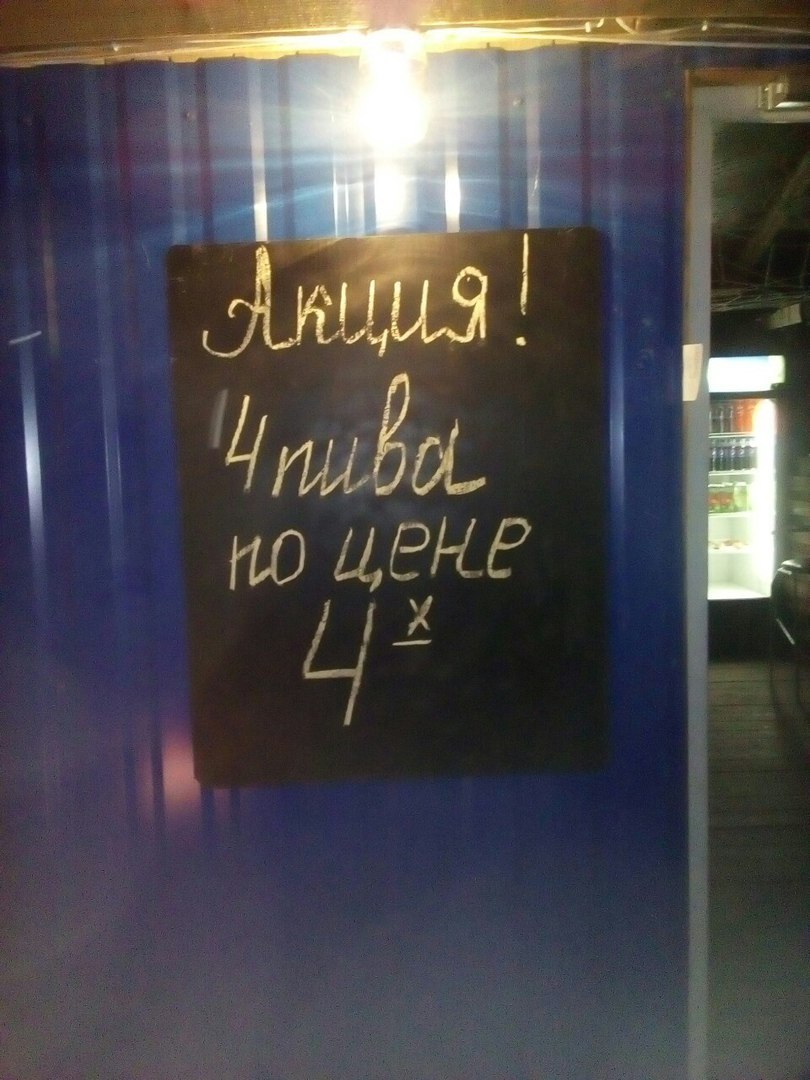 Акция!
4 пива
по цене
4х